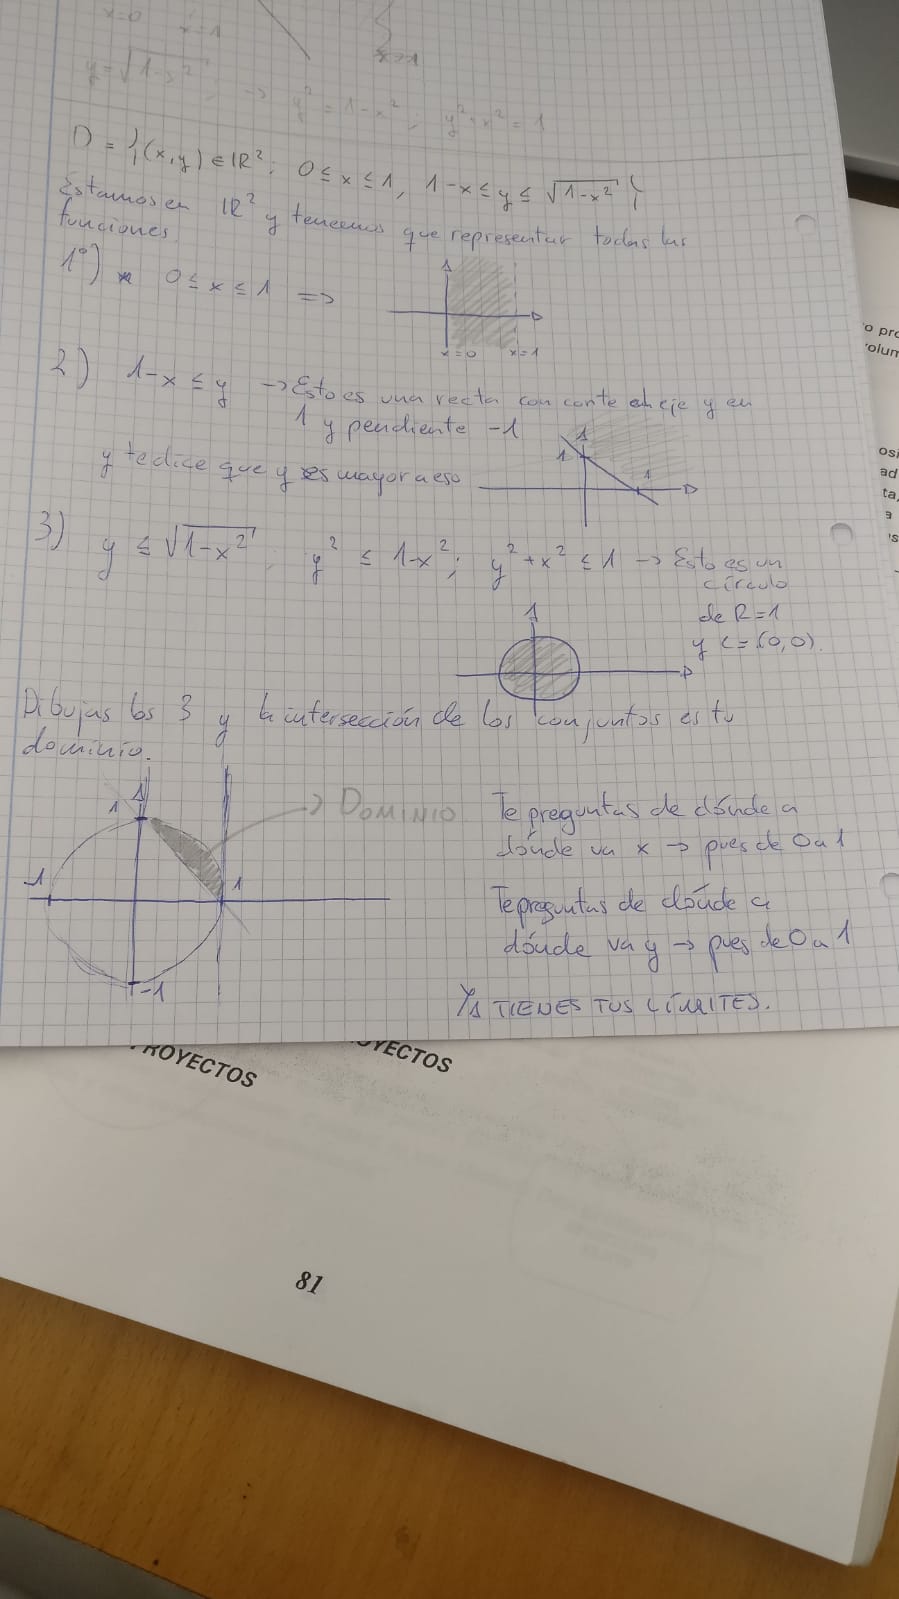 x=0
x=1
x>1
y=√1-x² ; → y² = 1-x² ; y²+x² = 1
D = {(x,y) ∈ ℝ² ; 0 ≤ x ≤ 1, 1-x ≤ y ≤ √1-x² }
Estamos en ℝ² y tenemos que representar todas las
funciones.
1º) 0 ≤ x ≤ 1 =>
x=0 x=1
2) 1-x ≤ y → Esto es una recta con corte al eje y en
1 y pendiente -1
1
1
y te dice que y es mayor a eso
3) y ≤ √1-x² ; y² ≤ 1-x² ; y²+x² ≤ 1 → Esto es un
círculo
de R=1
y C=(0,0).
Dibujas los 3 y la intersección de los conjuntos es tu
dominio.
1
→ DOMINIO
-1
1
-1
Te preguntas de dónde a
dónde va x → pues de 0 a 1
Te preguntas de dónde a
dónde va y → pues de 0 a 1
YA TIENES TUS LÍMITES.
PROYECTOS
OYECTOS
81